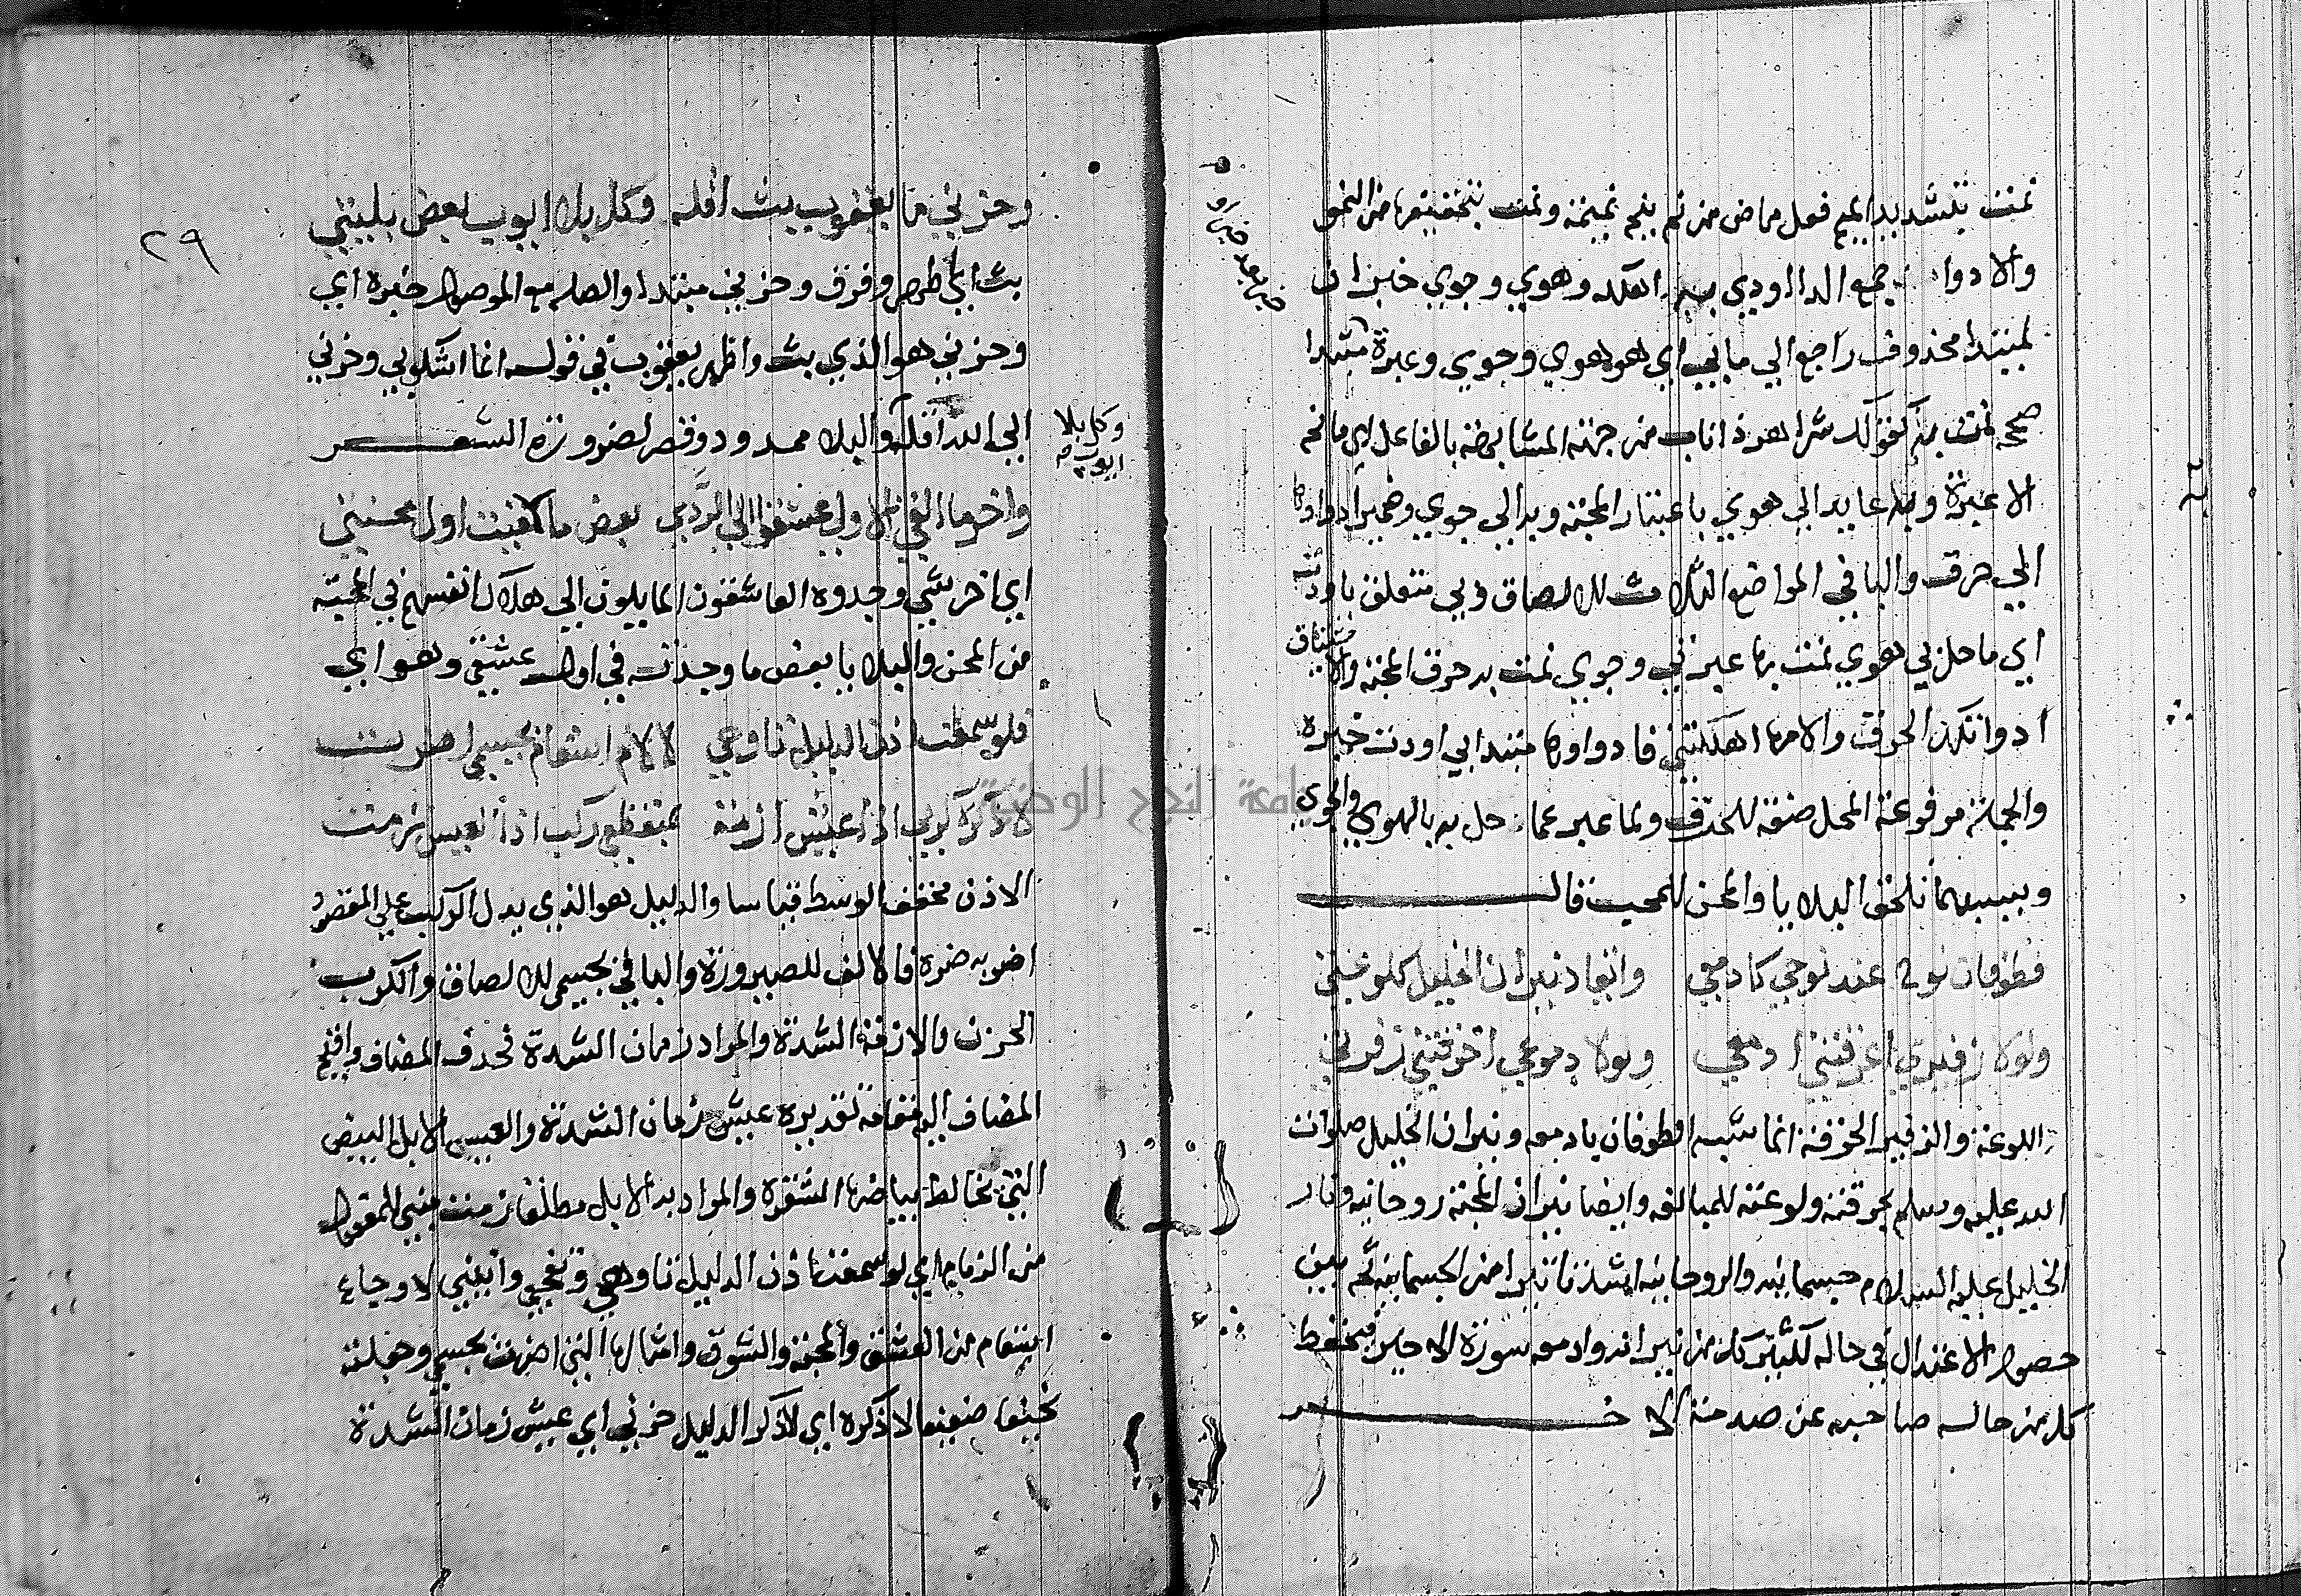 نمت بتشديد الميم فعل ماض من نم ينم نميمة ونمت بتخفيفها من النمو
والادوا جمع الدا اودي به اهلكه وهوي وجوي خبران
لمبتدا محذوف راجع الي ما بي اي هو هوي وجوي وعبرة مبتدا
صح نمت به كقولك شر اهر ذا ناب من جهة المشابهة بالفاعل اي ما نم
الا عبرة وبه عايد الي هوي باعتبار المحبة وبه الي جوي وضمير ادواوها
الي حرق والبا في المواضع الثلاث للالصاق وبي متعلق باودت
اي ما حل بي هوي نمت بها عبرتي وجوي نمت به حرق المحبة والاشتياق
ادوا تلك الحرق والامها اهلكتني فادواوها مبتدا بي اودت خبره
والجملة مرفوعة المحل صفة للحرق ولما عبر عما حل به بالهوي والجوي
وبسببهما تلحق البلايا والمحن للمحب قال
فطوفان نوح عند نوحي كادمعي وايقاد نيران الخليل كلوعتي
ولولا زفيري اغرقتني ادمعي ولولا دموعي احرقتني زفرتي
اللوعة والزفير الحرقة انما شبه الطوفان بادمعه ونيران الخليل صلوات
الله عليه وسلم بحرقته ولوعته للمبالغة وايضا نيران المحبة روحانية ونار
الخليل عليه السلام جسمانية والروحانية اشد تاثيرا من الجسمانية ثم بين
حصول الاعتدال في حاله لكسر كل من نيرانه وادمعه سورة الاخر فيحفظ
كل من حاله صاحبه عن صدمة الاخر
خبر بعد خبر او
وحزني ما يعقوب بث اقله وكل بلا ايوب بعض بليتي
بث اي اظهر وفرق وحزني مبتدا والصلة مع الموصول خبره اي
وحزني هو الذي بث واظهر يعقوب في قوله انما اشكو بثي وحزني
الي الله اقله والبلا ممدود وقصر لضرورة الشعر
واخر ما القي الاولي عشقوا الي الردي بعض ما لاقيت اول محنتي
اي اخر شي وجدوه العاشقون المايلون الي هلاك انفسهم في المحبة
من المحن والبلايا بعض ما وجدته في اول عشقي وهواي
فلو سمعت اذن الدليل تاوهي لالام اسقام بجسمي اضرت
لاذكره كربي اذا عيش ازمة بمنقطعي ركب اذا العيس زمت
الاذن مخفف الوسط قياسا والدليل هو الذي يدل الركب علي المقصود
اضر به ضره فالالف للصيرورة والبا في بجسمي للالصاق والكرب
الحزن والازمة الشدة والمراد زمان الشدة فحذف المضاف واقيم
المضاف اليه مقامه تقديره عيش زمان الشدة والعيس الابل البيض
التي تخالط بياضها الشقرة والمراد به الابل مطلقا زمت مبني للمفعول
من الزمام اي لو سمعت اذن الدليل تاوهي وتفجعي وانيني لاوجاع
اسقام من العشق والمحبة والشوق وامثالها التي اضرت بجسمي وجعلته
نحيفا ضعيفا لاذكره اي لاذكر الدليل حزني اي عيش زمان الشدة
وكل بلا ايوب
٢٩
جامعة النجاح الوطنية